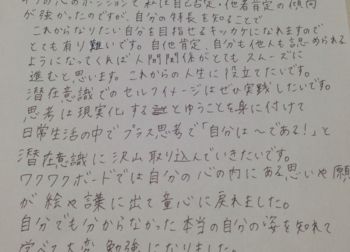 ポジションで私は自己否定・他者肯定の傾向
が強かったのですが、自分の特長を知ることで
これからなりたい自分を目指せるキッカケになれますので
とても有り難いです。自他肯定、自分も他人も認められる
ようになってくれば人間関係がとてもスムーズに
進むと思います。これからの人生に役立てたいです。
潜在意識でのセルフイメージはぜひ実践したいです。
思考は現実化するとゆうことを身に付けて
日常生活の中でプラス思考で「自分は〜である!」と
潜在意識に沢山取り込んでいきたいです。
ワクワクボードでは自分の心の内にある思いや願
が絵や言葉に出て童心に戻れました。
自分でも分からなかった本当の自分の姿を知れて
大変勉強になりました。